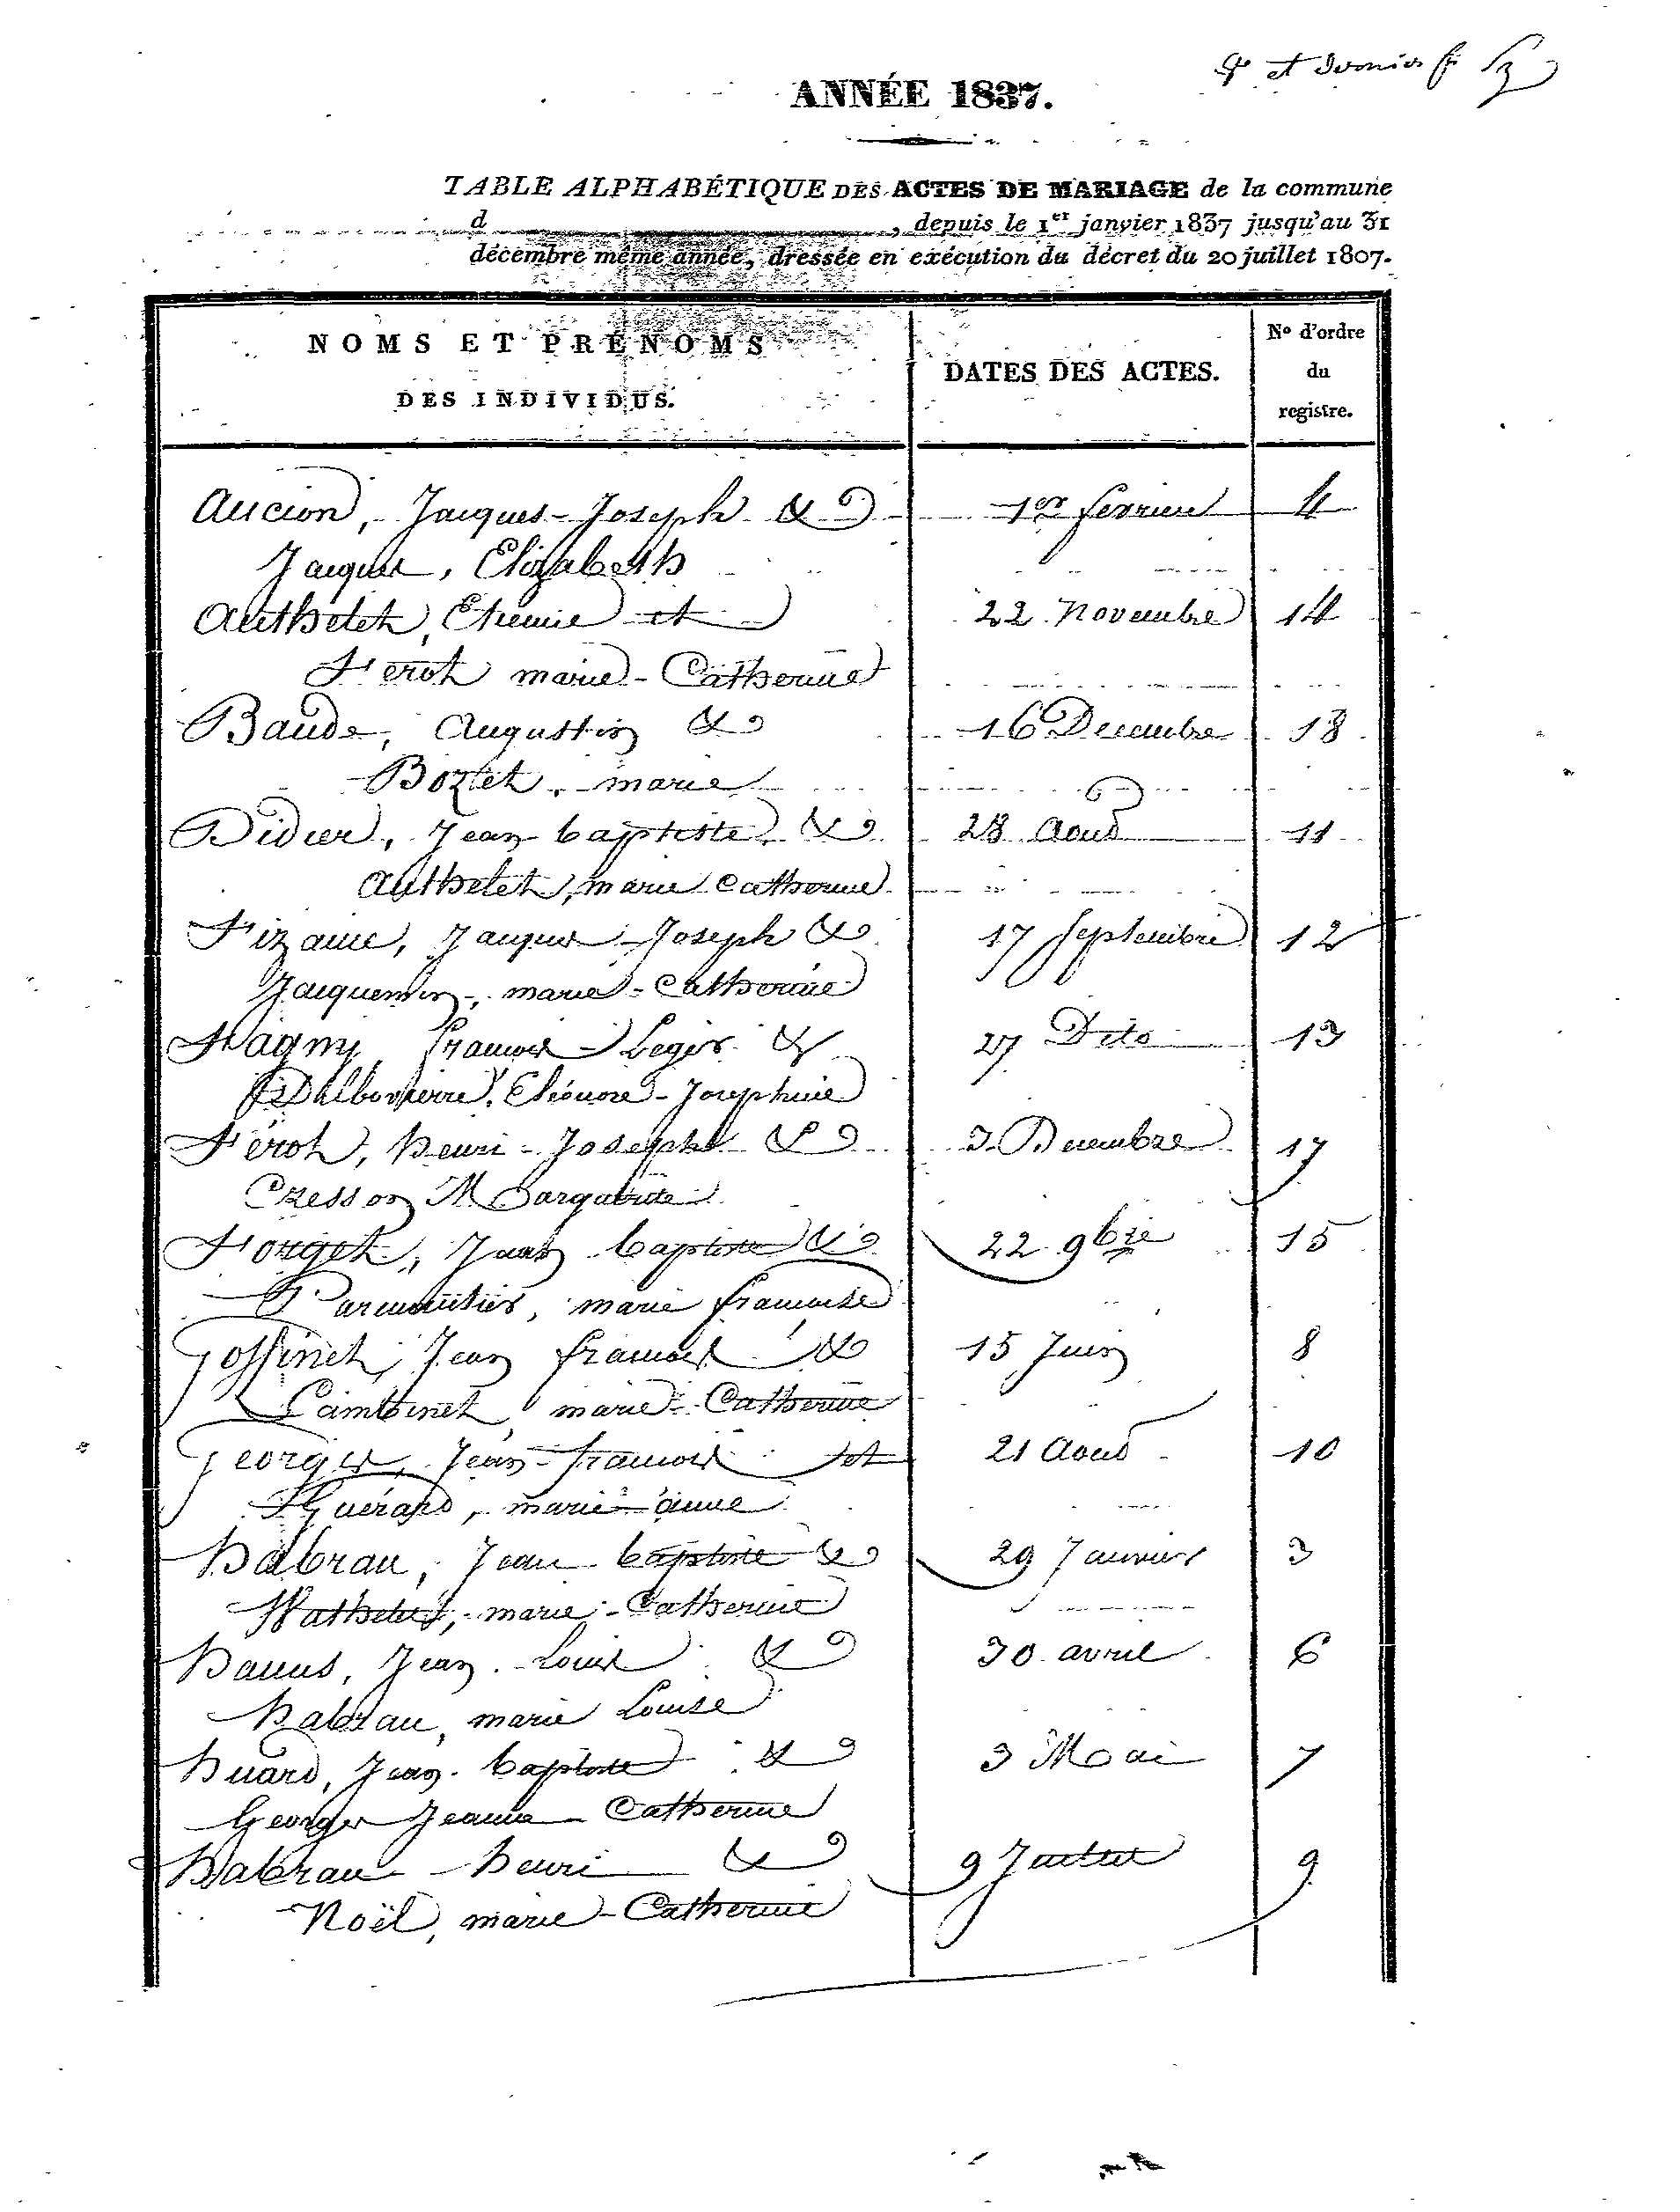 et dernier
ANNÉE 1837.
TABLE ALPHABÉTIQUE DES ACTES DE MARIAGE de la commune
d , depuis le 1er janvier 1837 jusqu'au 31
décembre même année, dressée en exécution du décret du 20 juillet 1807.
NOMS ET PRÉNOMS
DES INDIVIDUS.
DATES DES ACTES.
N° d'ordre
du
registre.
Aucion, Jacques-Joseph & 1er fevrier 4
Jacques, Elizabeth
Authelet, Etienne et 22 Novembre 14
Férot marie-Catherine
Baude, Augustin & 16 Decembre 18
Bozet, marie
Didier, Jean baptiste & 28 Aout 11
Authelet, marie Catherine
Fizaine, Jacques-Joseph & 17 Septembre 12
Jacquemin, marie-Catherine
françois Leger & 27 Dito 13
Eléonore-Josephine
Férot, henri-Joseph & 3 Decembre 17
Cresson Margueritte
Forget, Jean baptiste & 22 9bre 15
Parmentier, marie françoise
Goffinet, Jean françois & 15 Juin 8
Lambinet, marie-Catherine
Georges, Jean-françois et 21 Aout 10
Guérard, marie anne
habran, Jean baptiste & 29 Janvier 3
Wathelet, marie-Catherine
hanus, Jean-Louis & 30 avril 6
habran, marie Louise
huard, Jean-baptiste & 3 Mai 7
Georges Jeanne-Catherine
habran henri & 9 Juillet 9
Noël, marie-Catherine